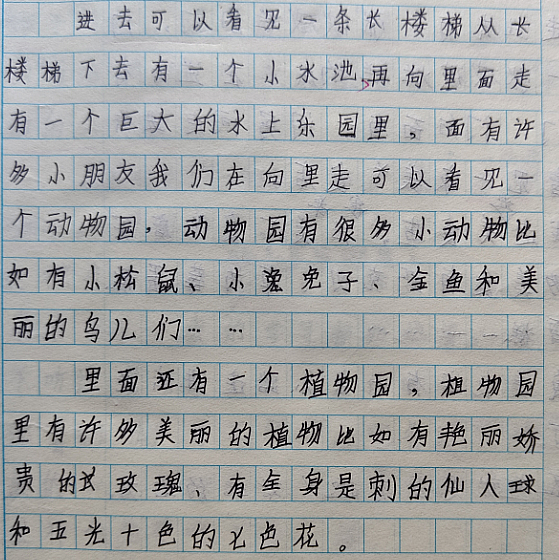 进去可以看见一条长楼梯从长
楼梯下去有一个小水池再向里面走
有一个巨大的水上乐园里，面有许
多小朋友我们在向里走可以看见一
个动物园，动物园有很多小动物比
如有小松鼠、小兔兔子、金鱼和美
丽的鸟儿们……
里面还有一个植物园，植物园
里有许多美丽的植物比如有艳丽娇
贵的玫玫瑰、有全身是刺的仙人球
和五光十色的七色花。